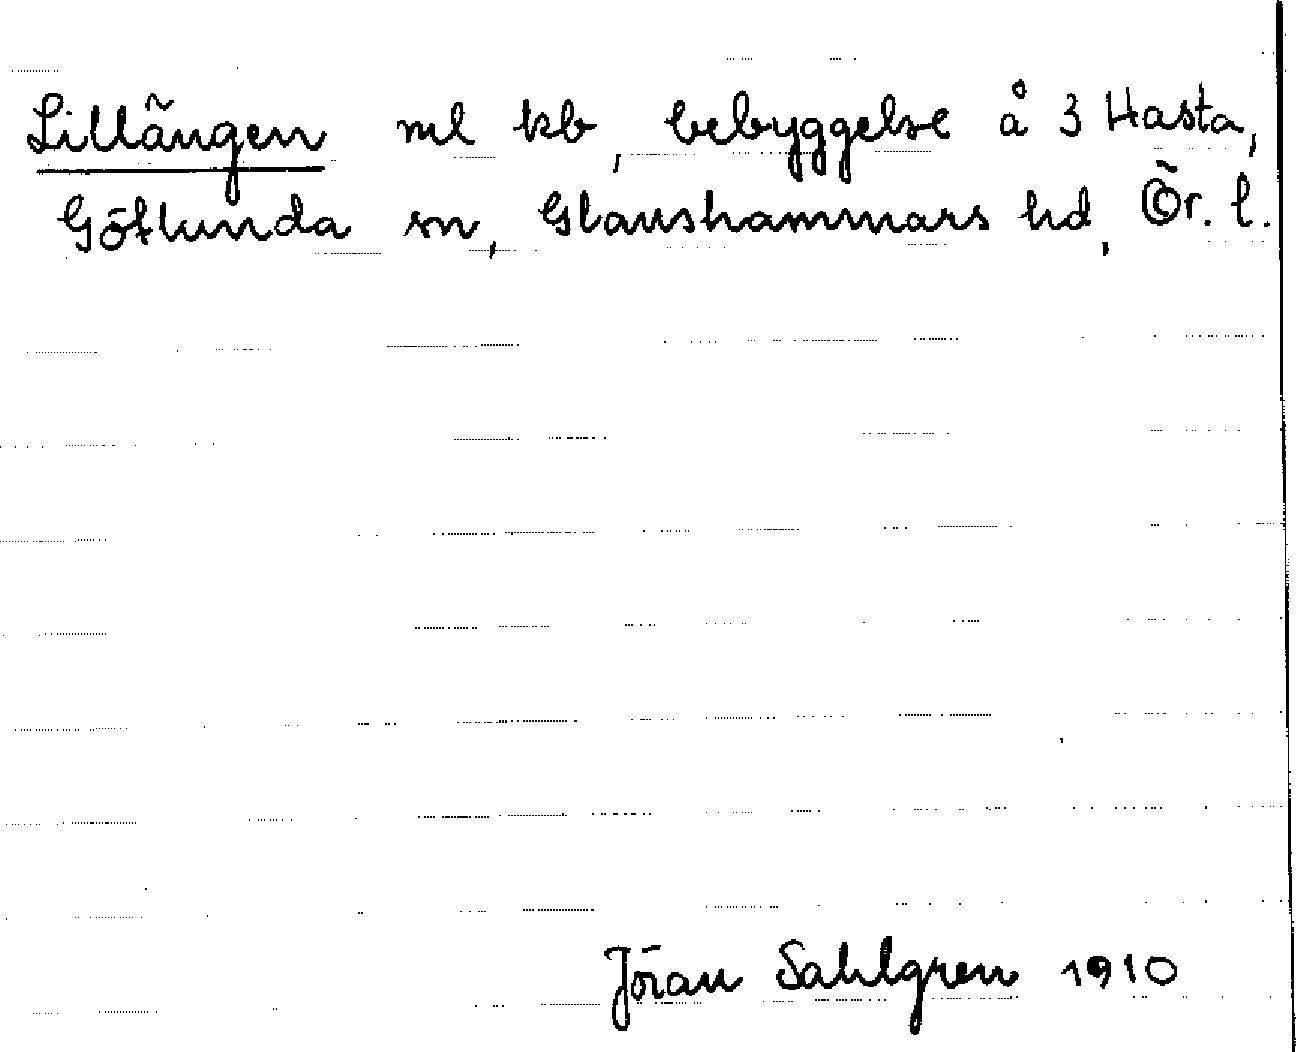 Lillängen ml kb, bebyggelse å 3 Hasta,
Götlunda sn, Glanshammars hd, Ör. l.
Jöran Sahlgren 1910